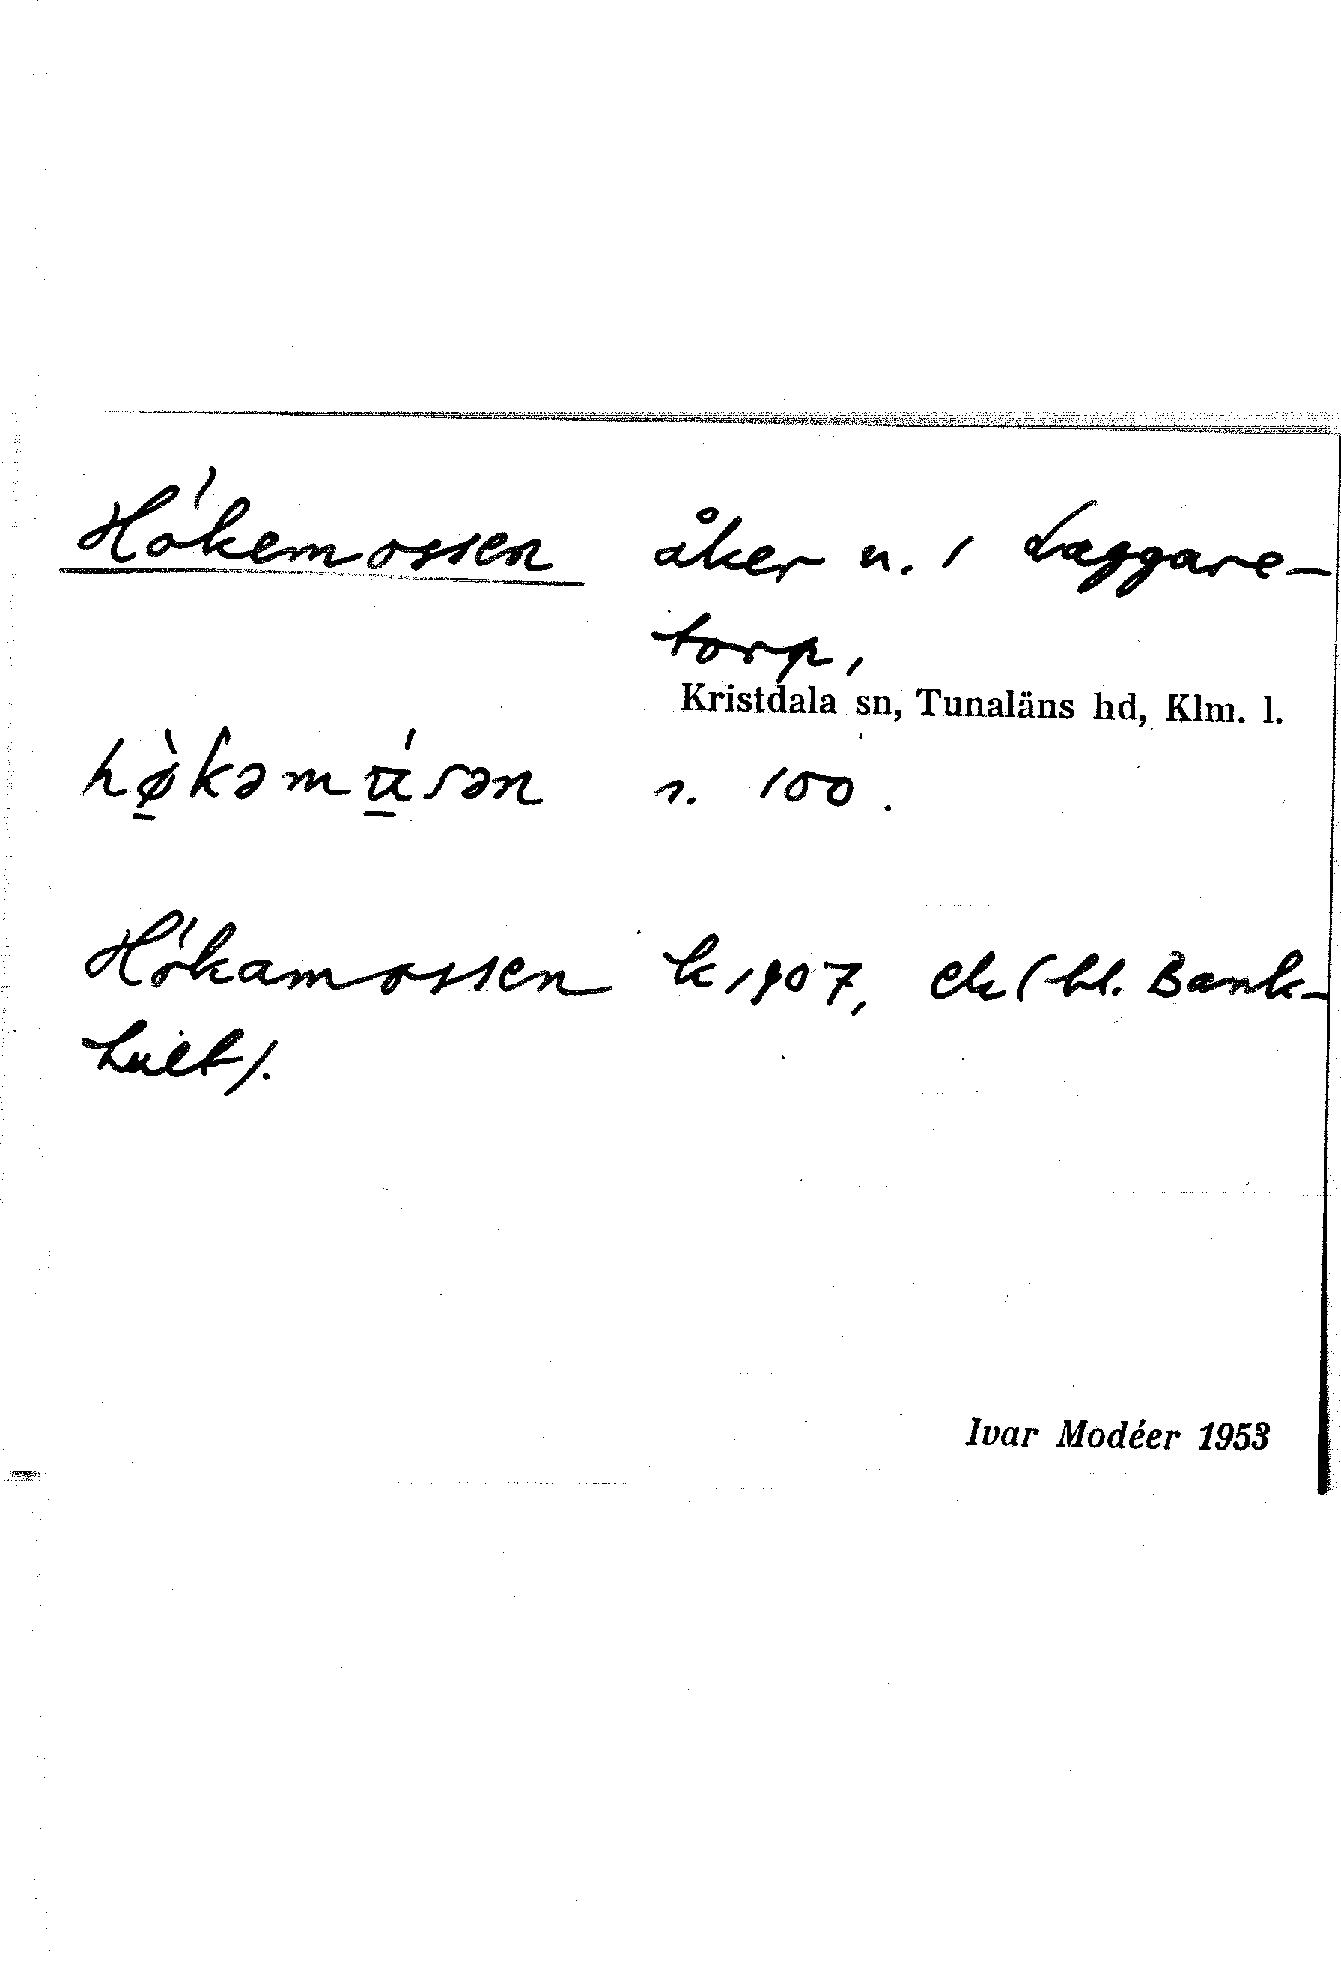 Hökemossen åker n. 1 Laggare-
torp,
Kristdala sn, Tunaläns hd, Klm. l.
hø̱̀kəmɷ̱́sən s. 100.
Hökamossen k 1907, ek (bl. Bank-
hult).
Ivar Modéer 1953